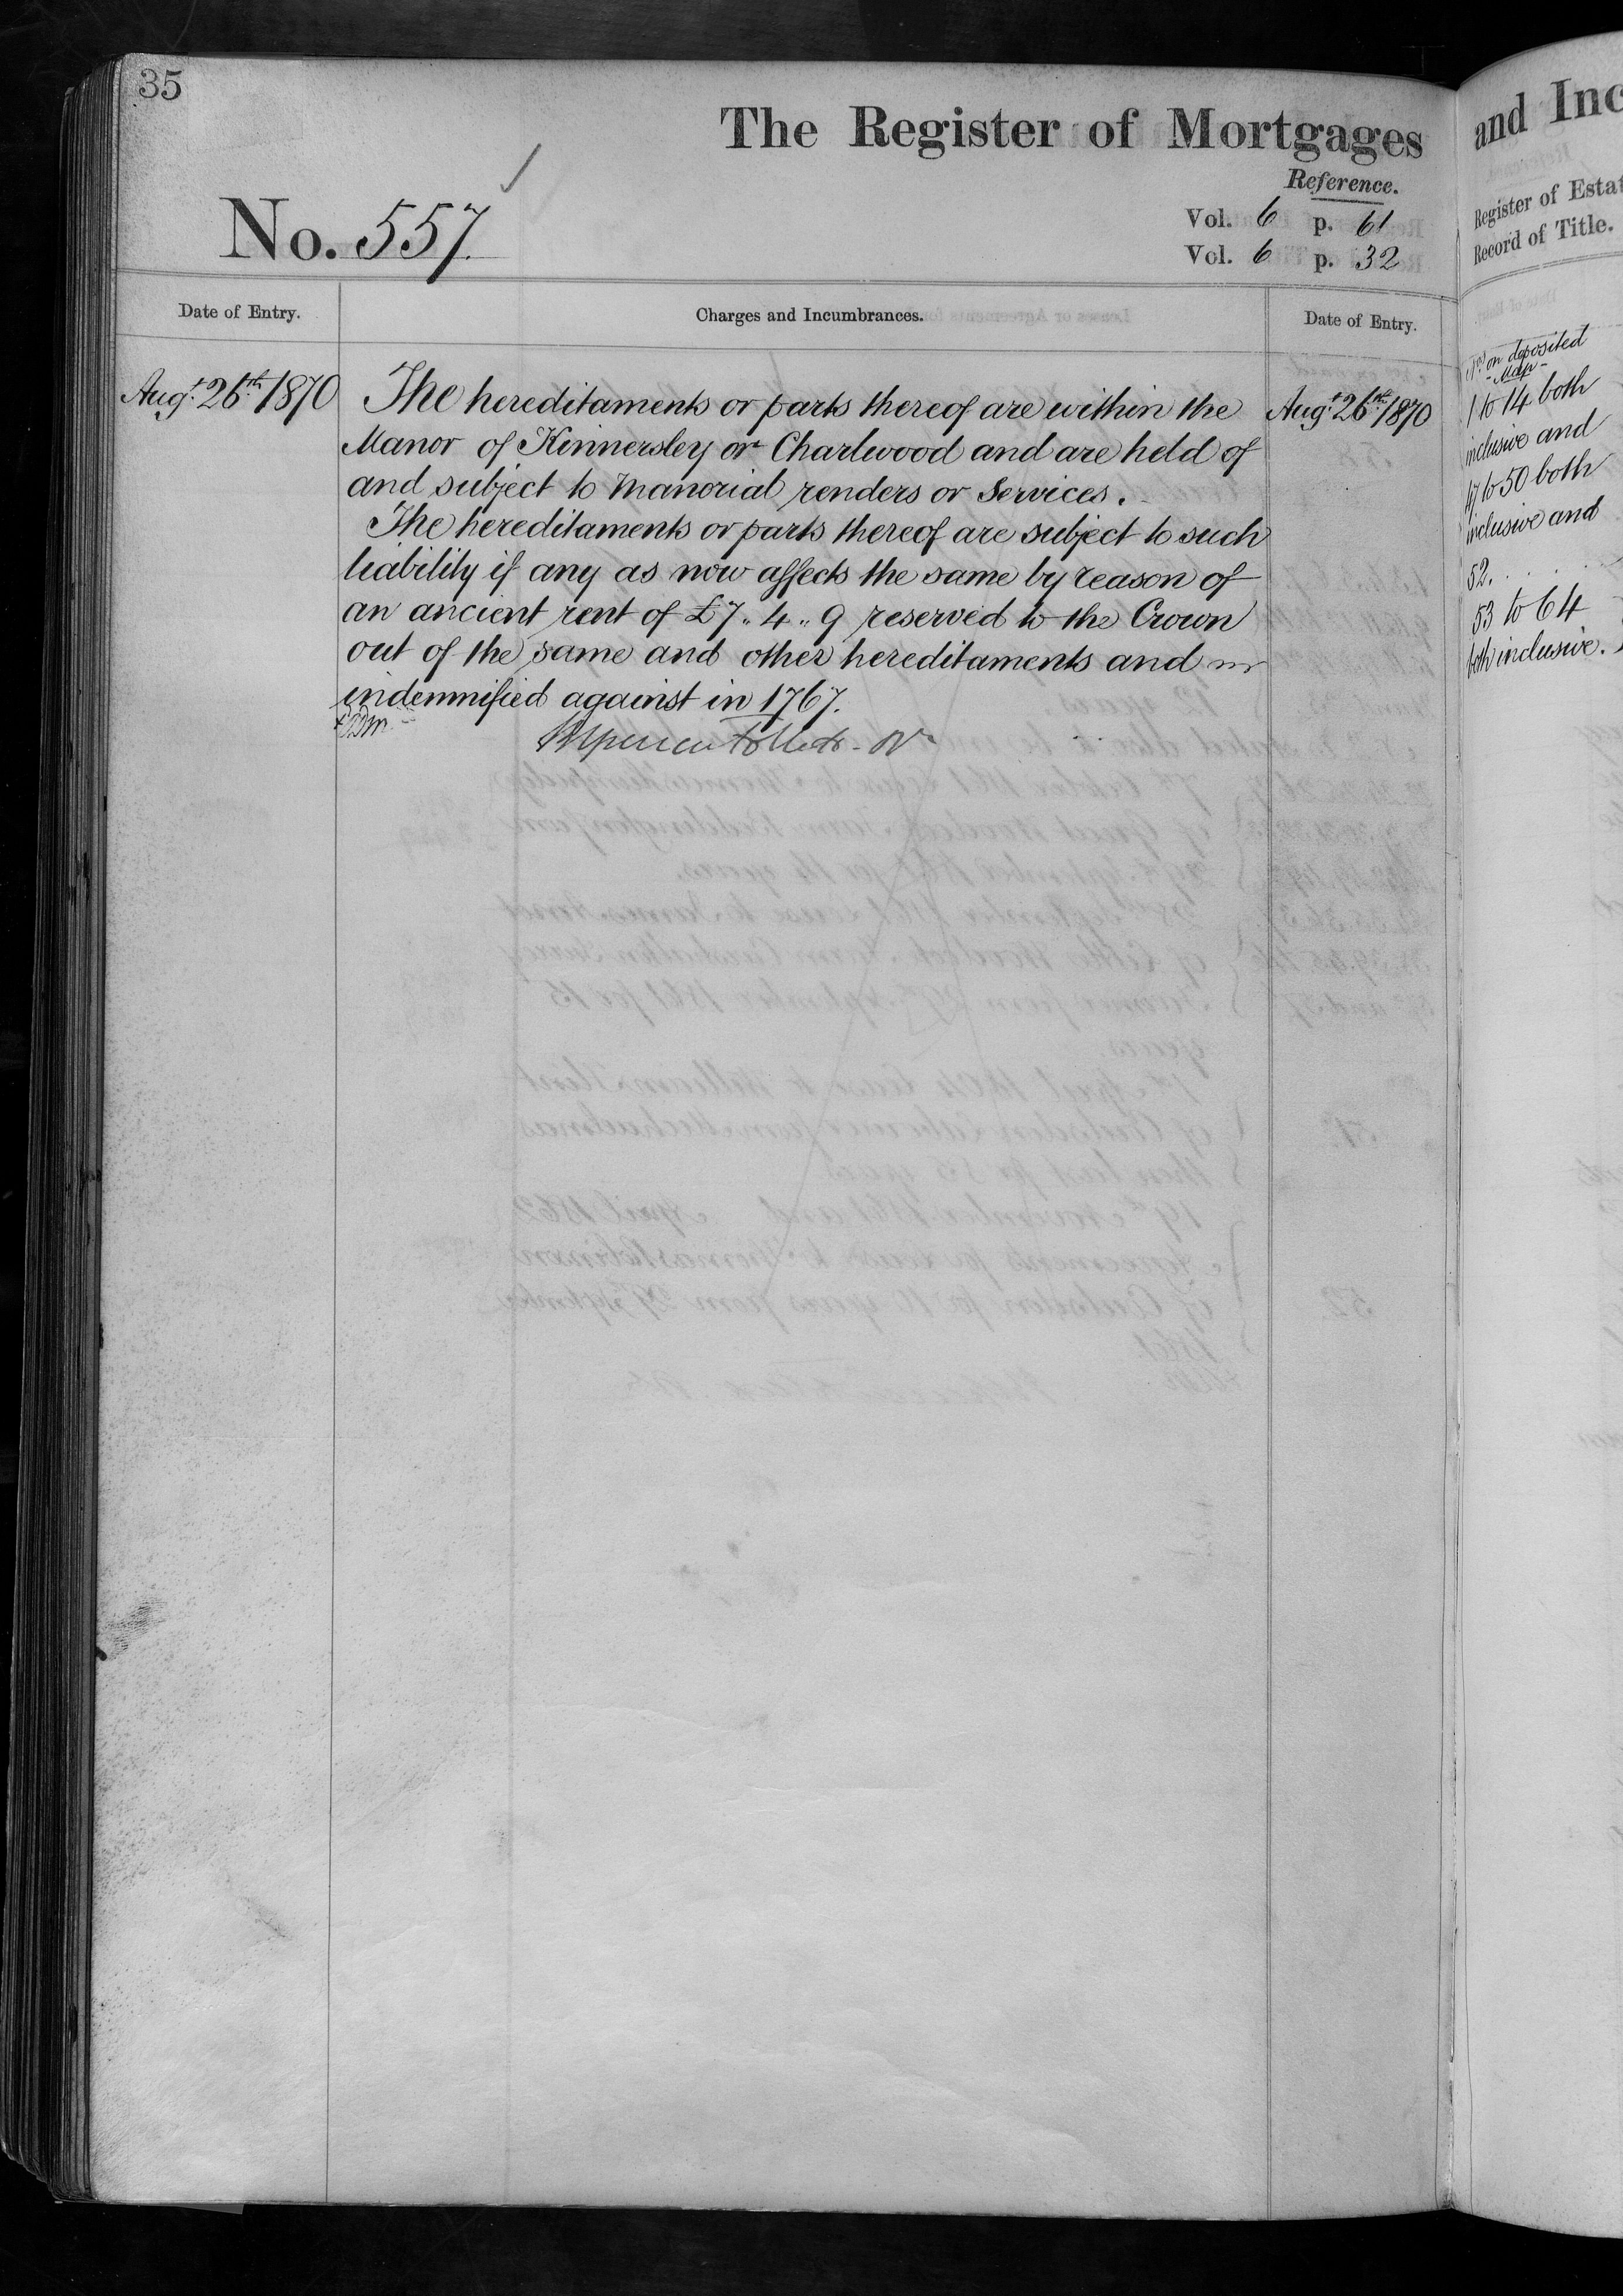 35
The Register of Mortgages
Reference.
No. 557.
Vol. 6 p. 61
Vol. 6 p. 32
Date of Entry.
Charges and Incumbrances.
Date of Entry.
Augt. 26th. 1870
The hereditaments or parts thereof are within the
Manor of Kinnersley or Charlwood and are held of
and subject to Manorial renders or Services.
The hereditaments or parts thereof are subject to such
liability if any as now affects the same by reason of
an ancient rent of £7 „ 4 „ 9 reserved to the Crown
out of the same and other hereditaments and
indemnified against in 1767.
Augt. 26th. 1870
and Inc
Register of Estat
Record of Title.
on deposited
- Map -
1 to 14 both
inclusive and
17 to 50 both
inclusive and
52.
53 to 64
both inclusive.